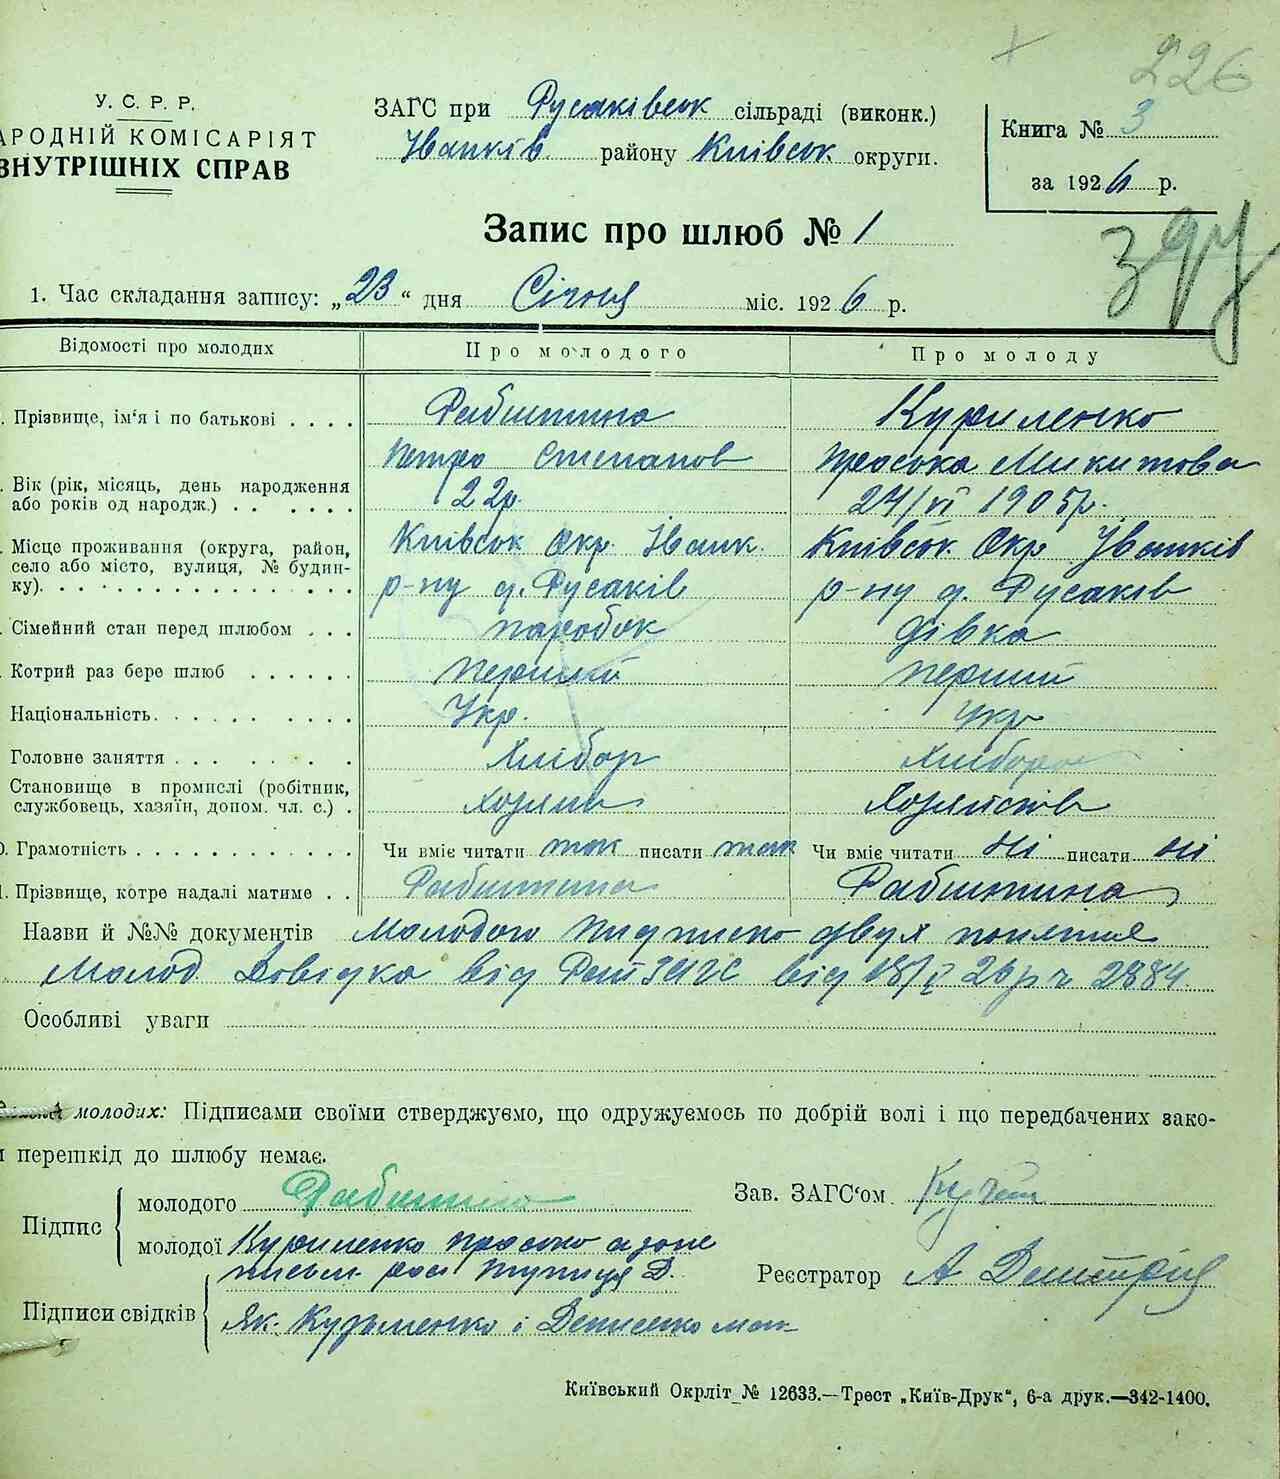 226
У. С. Р. Р.
АРОДНІЙ КОМІСАРІЯТ
ВНУТРІШНІХ СПРАВ
ЗАГС при Русаківськ сільраді (виконк.)
Іванків району Київськ округи.
Книга № 3
за 1926 р.
Запис про шлюб № 1
1. Час складання запису: „23“ дня Січня міс. 1926 р.
Відомості про молодих Про молодого Про молоду
. Прізвище, ім‘я і по батькові . . . . Рабитина Куриленко
Петро Степанов Проска Микитова
. Вік (рік, місяць, день народження
або років од народж.) . . . . . . . 22р. 24/VI 1905р.
. Місце проживання (округа, район, Київськ Окр. Іванк. Київськ. Окр Іванків
село або місто, вулиця, № будин-
ку). . . . . . . . . . . . . . . р-ну д. Русаків р-ну д. Русаків
. Сімейний стан перед шлюбом . . . паробок дівка
. Котрий раз бере шлюб . . . . . . перший перший
Національність. . . . . . . . . . Укр. укр
Головне заняття . . . . . . . . . Хлібор Хлібор
Становище в промислі (робітник,
службовець, хазяїн, допом. чл. с.) . хозяин
0. Грамотність . . . . . . . . . . . . Чи вміє читати так писати так Чи вміє читати ні писати ні
1. Прізвище, котре надалі матиме . . Рабитина Рабитина
Назви й №№ документів Молодого Пидписко двух
Молод. Довідка від ЗАГС від 18/I 26р ч 2884.
Особливі уваги
молодих: Підписами своїми стверджуємо, що одружуємось по добрій волі і що передбачених зако-
и перешкід до шлюбу немає.
Підпис
молодого Рабитина
Зав. ЗАГС‘ом
молодої Куриленко Проско а за не
письм. рос Тупиця Д.
Реєстратор А
Підписи свідків
Як. Кузьменко і Денисенко
Київський Окрліт № 12633.—Трест „Київ-Друк“, 6-а друк.—342-1400.